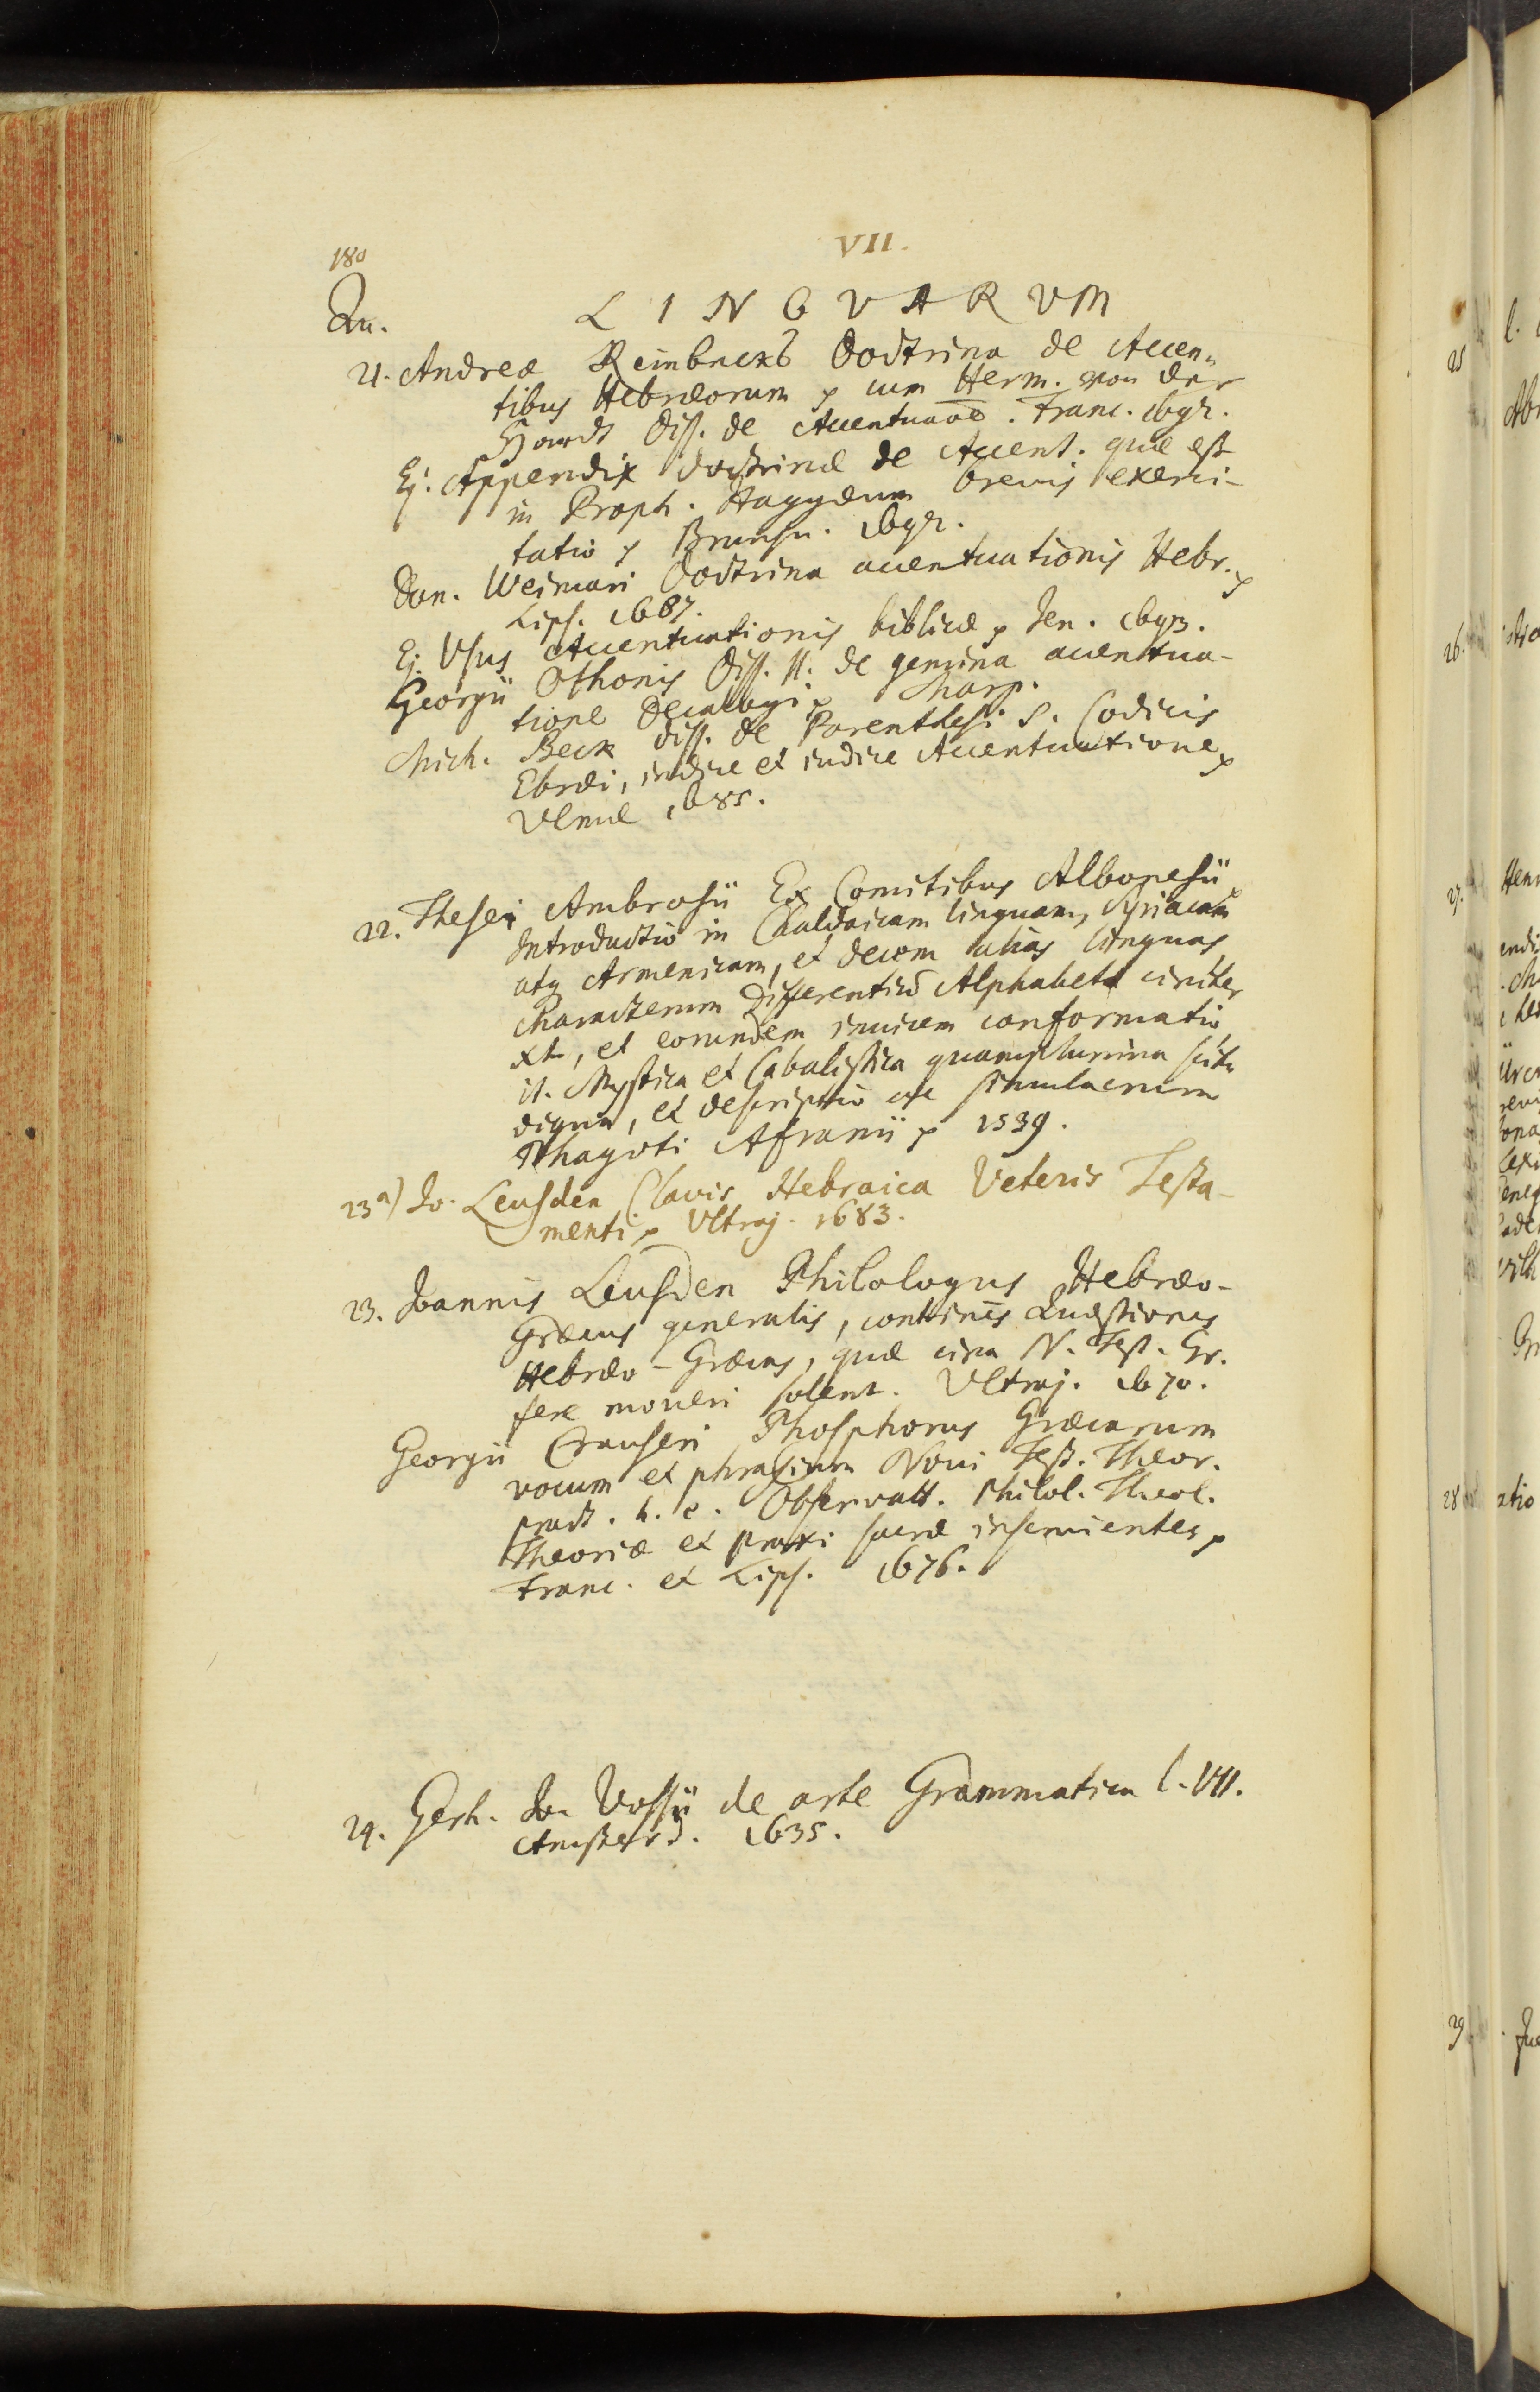 180
VII.
Qu.
LINGVARVM
21. Andreæ Reinbeckß Doctrina de Accen-
tibus Hebræorum p cum Herm. von der
Hardt Diss. de Accentuaõe. Franc. 1692.
Ej. Appendix doctrinæ de Accent. quæ est
in Proph. Haggæum brevis exerci-
tatio p Brunsu. 1692.
Dan. Weimari Doctrina accentuationis Hebr. p
Lips. 1687.
Ej. Vsus Accentuationis biblicæ p Jen. 1693.
Georgii Othonis Diss. II. de gemina accentua-
tione Decalogi p Marp.
Mich. Beck diss. de Parenthesi S. Codicis
Ebræi, indice et iudice Accentuatione p
Vlmæ 1685.
22. Thesei Ambrosii Ex Comitibus Albonesii
Introductio in Chaldaicam linguam, Syriacam
atq Armenicam, et decem alias linguas,
Characterum Differentiũ Alphabeta circiter
XL, et eorundem inuicem conformatio,
it. Mystica et Cabalistica quamplurima scitu
digna, et descriptio ac simulacrum
Phagoti Afranii p 1539.
23a) Jo. Leusden Clavis Hebraica Veteris Testa-
menti p Vltraj. 1683.
23. Joannis Leusden Philologus Hebræo-
Græcus generalis, continẽs Quæstiones
Hebræo-Græcas, quæ circa N. Test. Gr.
fere moueri solent. Vltraj. 1670.
Georgii Crauseri Phosphorus Græcarum
vocum et phrasium Noui Test. Theor.
pract. h. e. Obseruatt. Philol. Theol.
Theoriæ et praxi sacræ inseruientes p
Franc. et Lips. 1676.
24. Gerh. Jo. Vossii de arte Grammatica l. VII.
Amsterd. 1635.
25
26.
27.
28
29